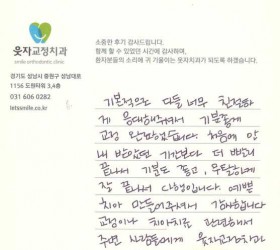 웃자교정치과
smile orthodontic clinic
경기도 성남시 중원구 성남대로
1156 도원타워 3,4층
031 606 0282
letssmile.co.kr
소중한 후기 감사드립니다.
함께 할 수 있었던 시간에 감사하며,
환자분들의 소리에 귀 기울이는 웃자치과가 되도록 하겠습니다.
기본적으로 다들 너무 친절하
게 응대해주셔서 기분좋게
교정 완료했습니다. 처음에 안
내 받았던 기간보다 더 빨리
끝나서 기분도 좋고, 무탈하게
잘 끝나서 다행입니다. 예쁜
치아 만들어주셔서 감사합니다
교정이나 치아치료 관련해서
주변 사람들에게 웃자교정치과